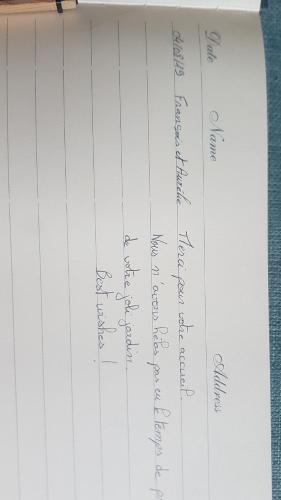 Date Name Address
François et Aurélie Merci pour votre accueil.
Nous n'avons hélas pas eu le temps de p
de votre joli jardin.
Best wishes !